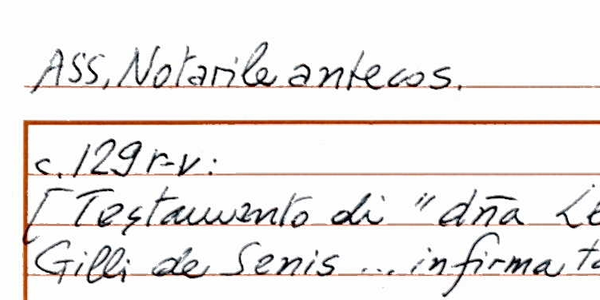 ASS, Notarile antecos.
c. 129 r-v:
[Testamento di "dña
Gilli de Senis ... infirma